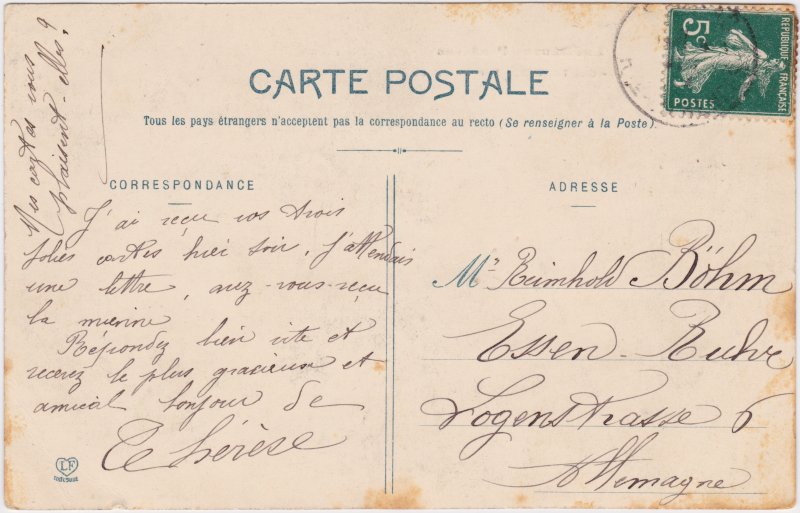 Mes cartes vous
plaisent-elles?
CARTE POSTALE
Tous les pays étrangers n'acceptent pas la correspondance au recto (Se renseigner à la Poste).
CORRESPONDANCE
J'ai reçu vos trois
jolies cartes hier soir, j'attendais
une lettre, avez-vous-reçu
la mienne
Répondez bien vite et
recevez le plus gracieux et
amical bonjour de
Thérèse
LF
ADRESSE
Mr Reimhold Böhm
Essen-Ruhr
Logenstrasse 6
Allemagne
RÉPUBLIQUE FRANÇAISE
5c
POSTES